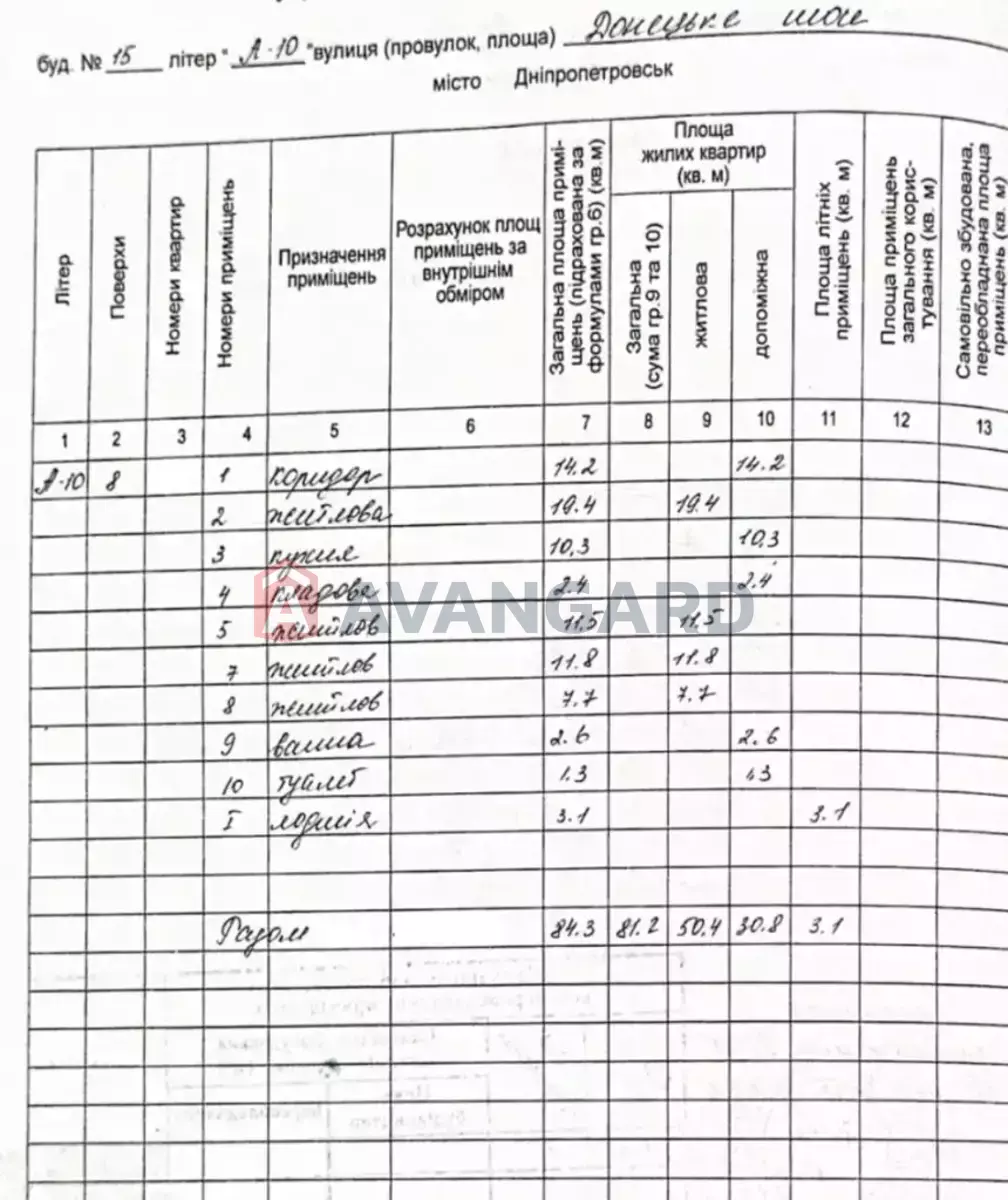 буд. № 15 літер " А-10 "вулиця (провулок, площа) Донецьке шосе
місто Дніпропетровськ
Літер
Поверхи
Номери квартир
Номери приміщень
Призначення приміщень
Розрахунок площ приміщень за внутрішнім обміром
Загальна площа приміщень (підрахована за формулами гр.6) (кв.м)
Площа жилих квартир (кв. м)
Загальна (сума гр.9 та 10)
житлова
допоміжна
Площа літніх приміщень (кв. м)
Площа приміщень загального користування (кв. м)
Самовільно збудована, переобладнана площа приміщень (кв. м)
1 2 3 4 5 6 7 8 9 10 11 12 13
А-10 8 1 коридор 14.2 14.2
2 житлова 19.4 19.4
3 кухня 10,3 10,3
4 кладова 2.4 2.4
AVANGARD
5 житлов 11.5 11.5
7 житлов 11.8 11.8
8 житлов 7.7 7.7
9 ванна 2.6 2.6
10 туалет 1.3 1.3
I лоджія 3.1 3.1
Разом 84.3 81.2 50.4 30.8 3.1